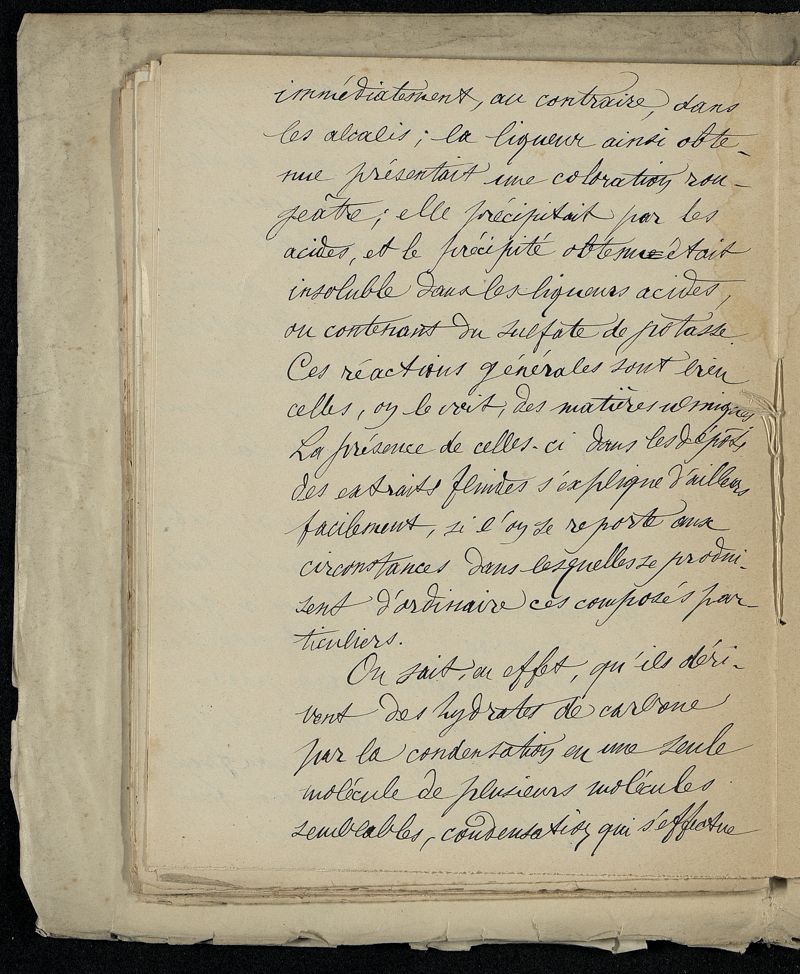 immédiatement, au contraire, dans
les alcalis ; la liqueur ainsi obte-
nue présentait une coloration rou-
geâtre ; elle précipitait par les
acides, et le précipité obtenu était
insoluble dans les liqueurs acides,
ou contenant du sulfate de potasse.
Ces réactions générales sont bien
celles, on le voit, des matières ulmiques.
La présence de celles-ci dans les dépôts
des extraits fluides s'explique d'ailleurs
facilement, si l'on se reporte aux
circonstances dans lesquelles se produi-
sent d'ordinaire ces composés par-
ticuliers.
On sait, en effet, qu'ils déri-
vent des hydrates de carbone
par la condensation en une seule
molécule de plusieurs molécules
semblables, condensation qui s'effectue